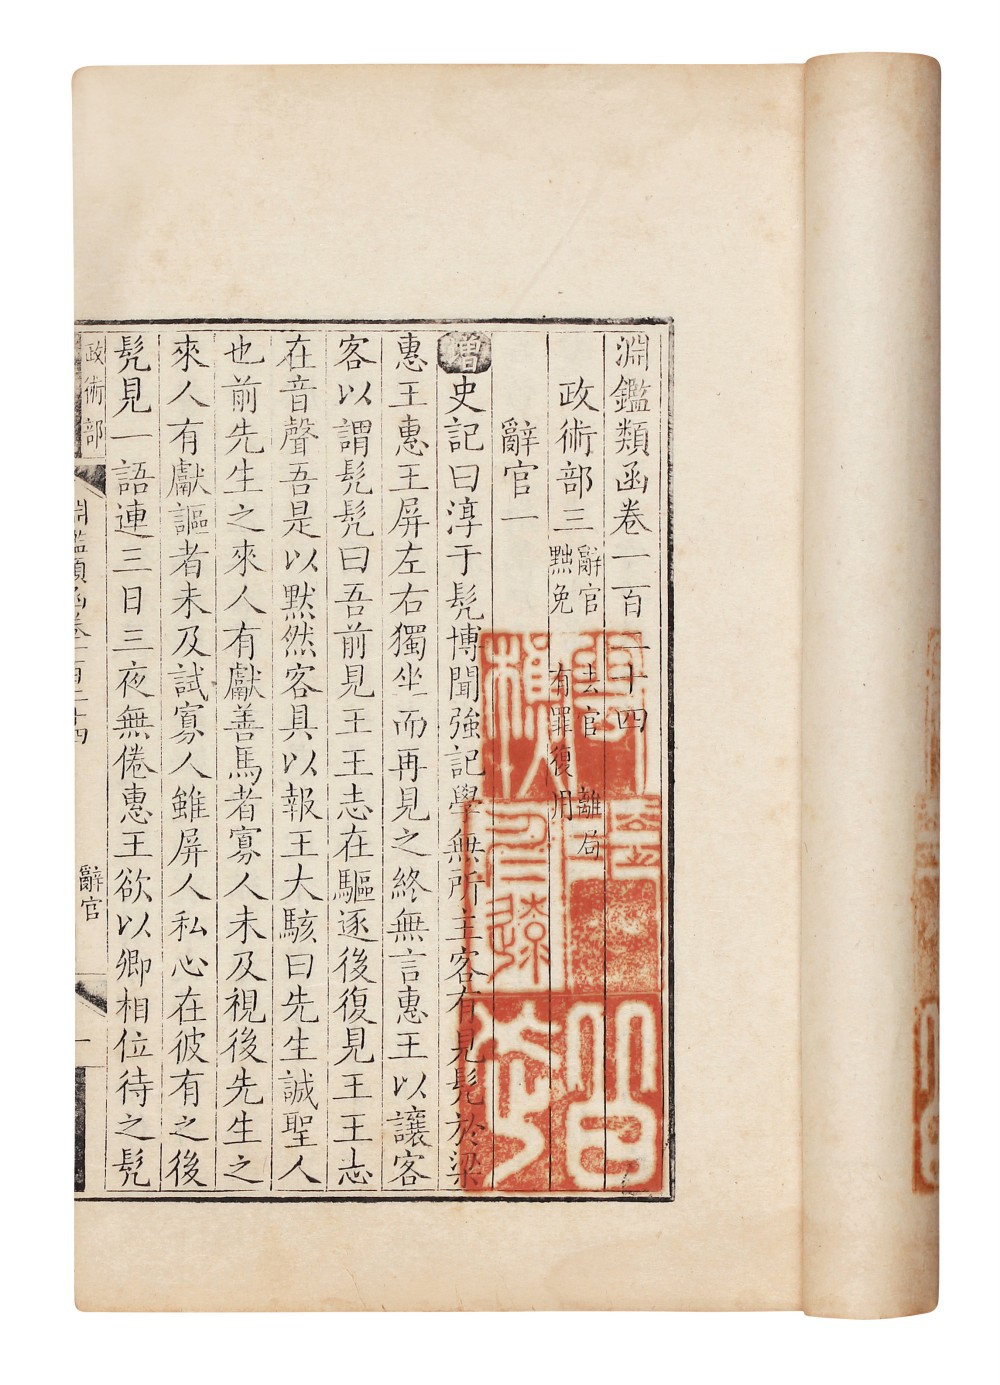 淵鑑類函卷一百二十四
政術部三 辭官 去官 離局 黜免 有罪復用
辭官一
增史記曰淳于髡博聞強記學無所主客有見髡於梁
惠王惠王屏左右獨坐而再見之終無言惠王以讓客
客以謂髡髡曰吾前見王王志在驅逐後復見王王志
在音聲吾是以默然客具以報王大駭曰先生誠聖人
也前先生之來人有獻善馬者寡人未及視後先生之
來人有獻謳者未及試寡人雖屏人私心在彼有之後
髡見一語連三日三夜無倦惠王欲以卿相位待之髡
政術部
淵鑑類函卷一百二十四
辭官
一